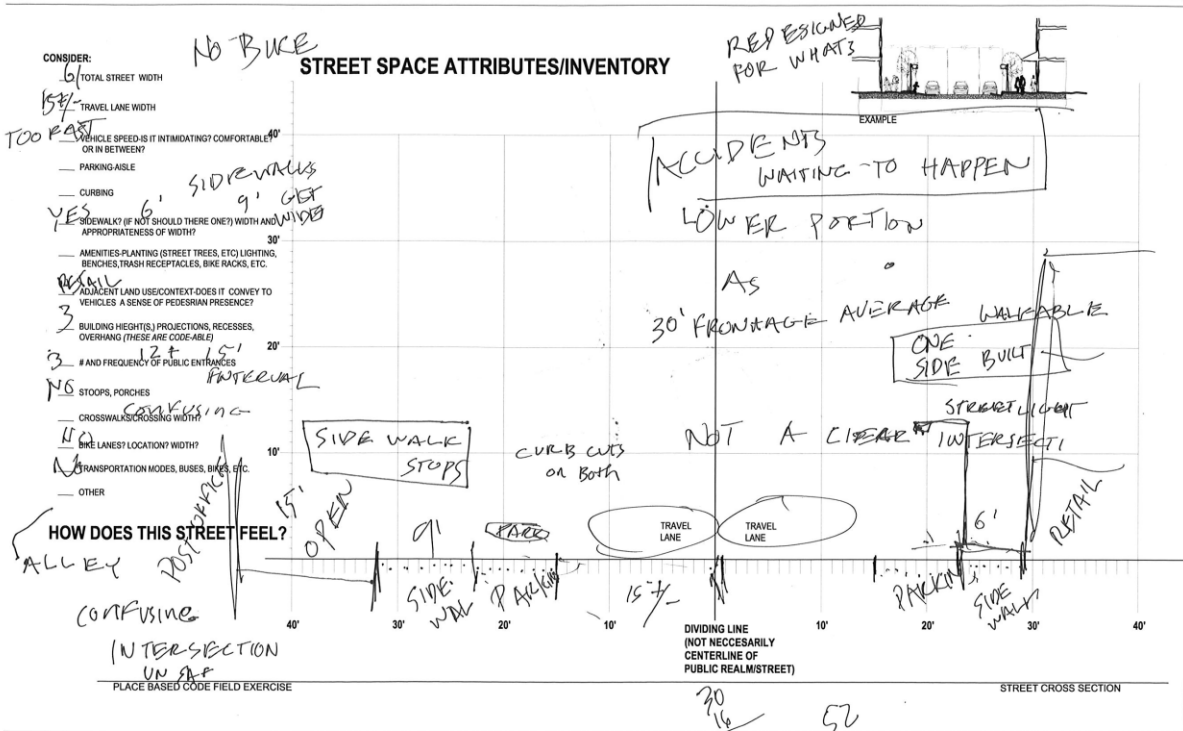 NO BIKE
REDESIGNED
FOR WHAT?
STREET SPACE ATTRIBUTES/INVENTORY
EXAMPLE
CONSIDER:
6 TOTAL STREET WIDTH
15+/- TRAVEL LANE WIDTH
TOO FAST
VEHICLE SPEED-IS IT INTIMIDATING? COMFORTABLE?
OR IN BETWEEN?
__ PARKING-AISLE
__ CURBING
SIDEWALKS
6' 9' GET
WIDE
YES SIDEWALK? (IF NOT SHOULD THERE ONE?) WIDTH AND
APPROPRIATENESS OF WIDTH?
__ AMENITIES-PLANTING (STREET TREES, ETC) LIGHTING,
BENCHES,TRASH RECEPTACLES, BIKE RACKS, ETC.
RETAIL
ADJACENT LAND USE/CONTEXT-DOES IT CONVEY TO
VEHICLES A SENSE OF PEDESRIAN PRESENCE?
3 BUILDING HIEGHT(S,) PROJECTIONS, RECESSES,
OVERHANG (THESE ARE CODE-ABLE)
12+ 15'
3 # AND FREQUENCY OF PUBLIC ENTRANCES
INTERVAL
NO STOOPS, PORCHES
CONFUSING
__ CROSSWALKS/CROSSING WIDTH?
NO BIKE LANES? LOCATION? WIDTH?
NO TRANSPORTATION MODES, BUSES, BIKES, ETC.
__ OTHER
HOW DOES THIS STREET FEEL?
ALLEY
CONFUSING
INTERSECTION
UNSAF
40'
30'
20'
10'
ACCIDENTS
WAITING TO HAPPEN
LOWER PORTION
AS
30' FRONTAGE AVERAGE WALKABLE
ONE
SIDE BUILT
STREET LIGHT
NOT A CLEAR INTERSECTI
SIDE WALK
STOPS
CURB CUTS
on Both
POST OFFICE
15'
OPEN
9'
PARK
TRAVEL
LANE
TRAVEL
LANE
6'
RETAIL
SIDE
WAL
PARKING
15+/-
PARKIN
SIDE
WALK
40' 30' 20' 10' 10' 20' 30' 40'
DIVIDING LINE
(NOT NECCESARILY
CENTERLINE OF
PUBLIC REALM/STREET)
PLACE BASED CODE FIELD EXERCISE
STREET CROSS SECTION
30
16
52